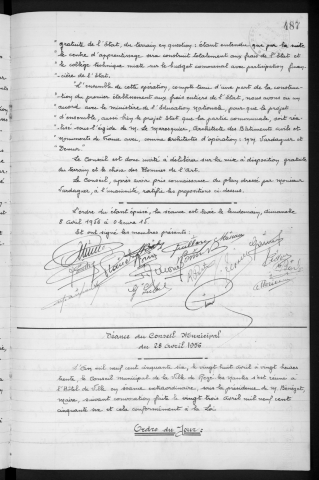 487
"gratuite de l'Etat, du terrain en question; étant entendu que par la suite
"le centre d'apprentissage sera construit totalement aux frais de l'Etat et
"le collège technique mixte sur le budget communal avec participation finan-
"cière de l'Etat.
"L'ensemble de cette opération, compte tenu d'une part de la construc-
"tion du premier établissement aux frais entiers de l'Etat, nous avons eu un
"accord avec le ministère de l'Education Nationale, pour que le projet
"d'ensemble, aussi bien le projet Etat que la partie communale, soit réa-
"lisé sous l'égide de M. Le Maresquier, Architecte des Bâtiments civils et
"monuments de France avec, comme architectes d'opération: MM. Vardaguer et
Le Conseil est donc invité à délibérer sur la mise à disposition gratuite
du terrain et le choix des Hommes de l'Art.
Le Conseil, après avoir pris connaissance du plan dressé par Monsieur
Vardaguer, à l'unanimité, ratifie les propositions ci-dessus.
L'ordre du jour étant épuisé, la séance est levée le lendemain, dimanche
8 avril 1956 à 0 heure 45.
Et ont signé les membres présents:
Séance du Conseil Municipal
du 28 avril 1956
L'An mil neuf cent cinquante six, le vingt huit avril à vingt heures
trente, le Conseil Municipal de la Ville de Rezé les Nantes s'est réuni à
l'Hôtel de Ville en séance extraordinaire, sous la présidence de M. Bénezet,
maire, suivant convocation faite le vingt trois avril mil neuf cent
cinquante six et cela conformément à la Loi.
Ordre du Jour: